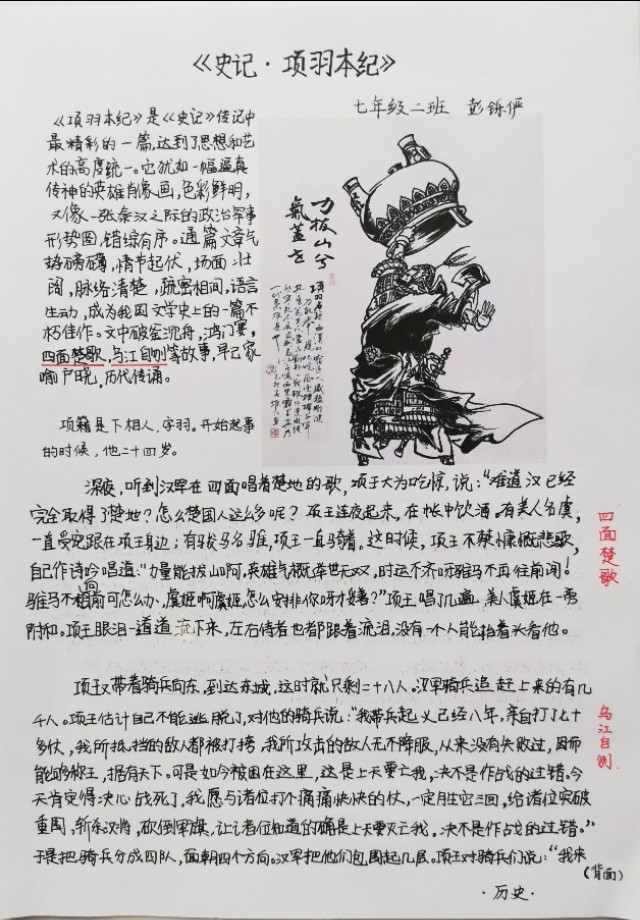 《史记·项羽本纪》
七年级二班 彭铄俨
《项羽本纪》是《史记》传记中
最精彩的一篇,达到了思想和艺
术的高度统一。它犹如一幅逼真
传神的英雄肖像画,色彩鲜明,
又像一张秦汉之际的政治军事
形势图,错综有序。通篇文章气
势磅礴,情节起伏,场面壮
阔,脉络清楚,疏密相间,语言
生动,成为我国文学史上的一篇不
朽佳作。文中破釜沉舟,鸿门宴,
四面楚歌,乌江自刎等故事,早已家
喻户晓,历代传诵。
力拔山兮
氣蓋世
项籍是下相人,字羽。开始起事
的时候,他二十四岁。
深夜,听到汉军在四面唱着楚地的歌,项王大为吃惊,说:“难道汉已经
完全取得了楚地?怎么楚国人这么多呢?项王连夜起来,在帐中饮酒。有美人名虞,
一直受宠跟在项王身边;有骏马名骓,项王一直骑着。这时候,项王不禁慷慨悲歌,
自己作诗吟唱道:“力量能拔山啊,英雄气概举世无双,时运不济呀骓马不再往前闯!
骓马不向前可怎么办,虞姬啊虞姬怎么安排你呀才妥善?”项王唱了几遍,美人虞姬在一旁
附和。项王眼泪一道道流下来,左右侍者也都跟着流泪,没有一个人能抬着头看他。
四面楚歌
项王又带着骑兵向东,到达东城,这时就只剩二十八人。汉军骑兵追赶上来的有几
千人。项王估计自己不能逃脱了,对他的骑兵说:“我带兵起义已经八年,亲自打了七十
多仗,我所抵挡的敌人都被打垮,我所攻击的敌人无不降服,从来没有失败过,因而
能够称王,据有天下。可是如今被困在这里,这是上天要亡我,决不是作战的过错。今
天肯定得决心战死了,我愿与诸位打个痛痛快快的仗,一定胜它三回,给诸位突破
重围,斩杀汉将,砍倒军旗,让诸位知道的确是上天要灭亡我,决不是作战的过错。”
于是把骑兵分成四队,面朝四个方向。汉军把他们包围起几层。项王对骑兵们说:“我来
乌江自刎
(背面)
·历史·